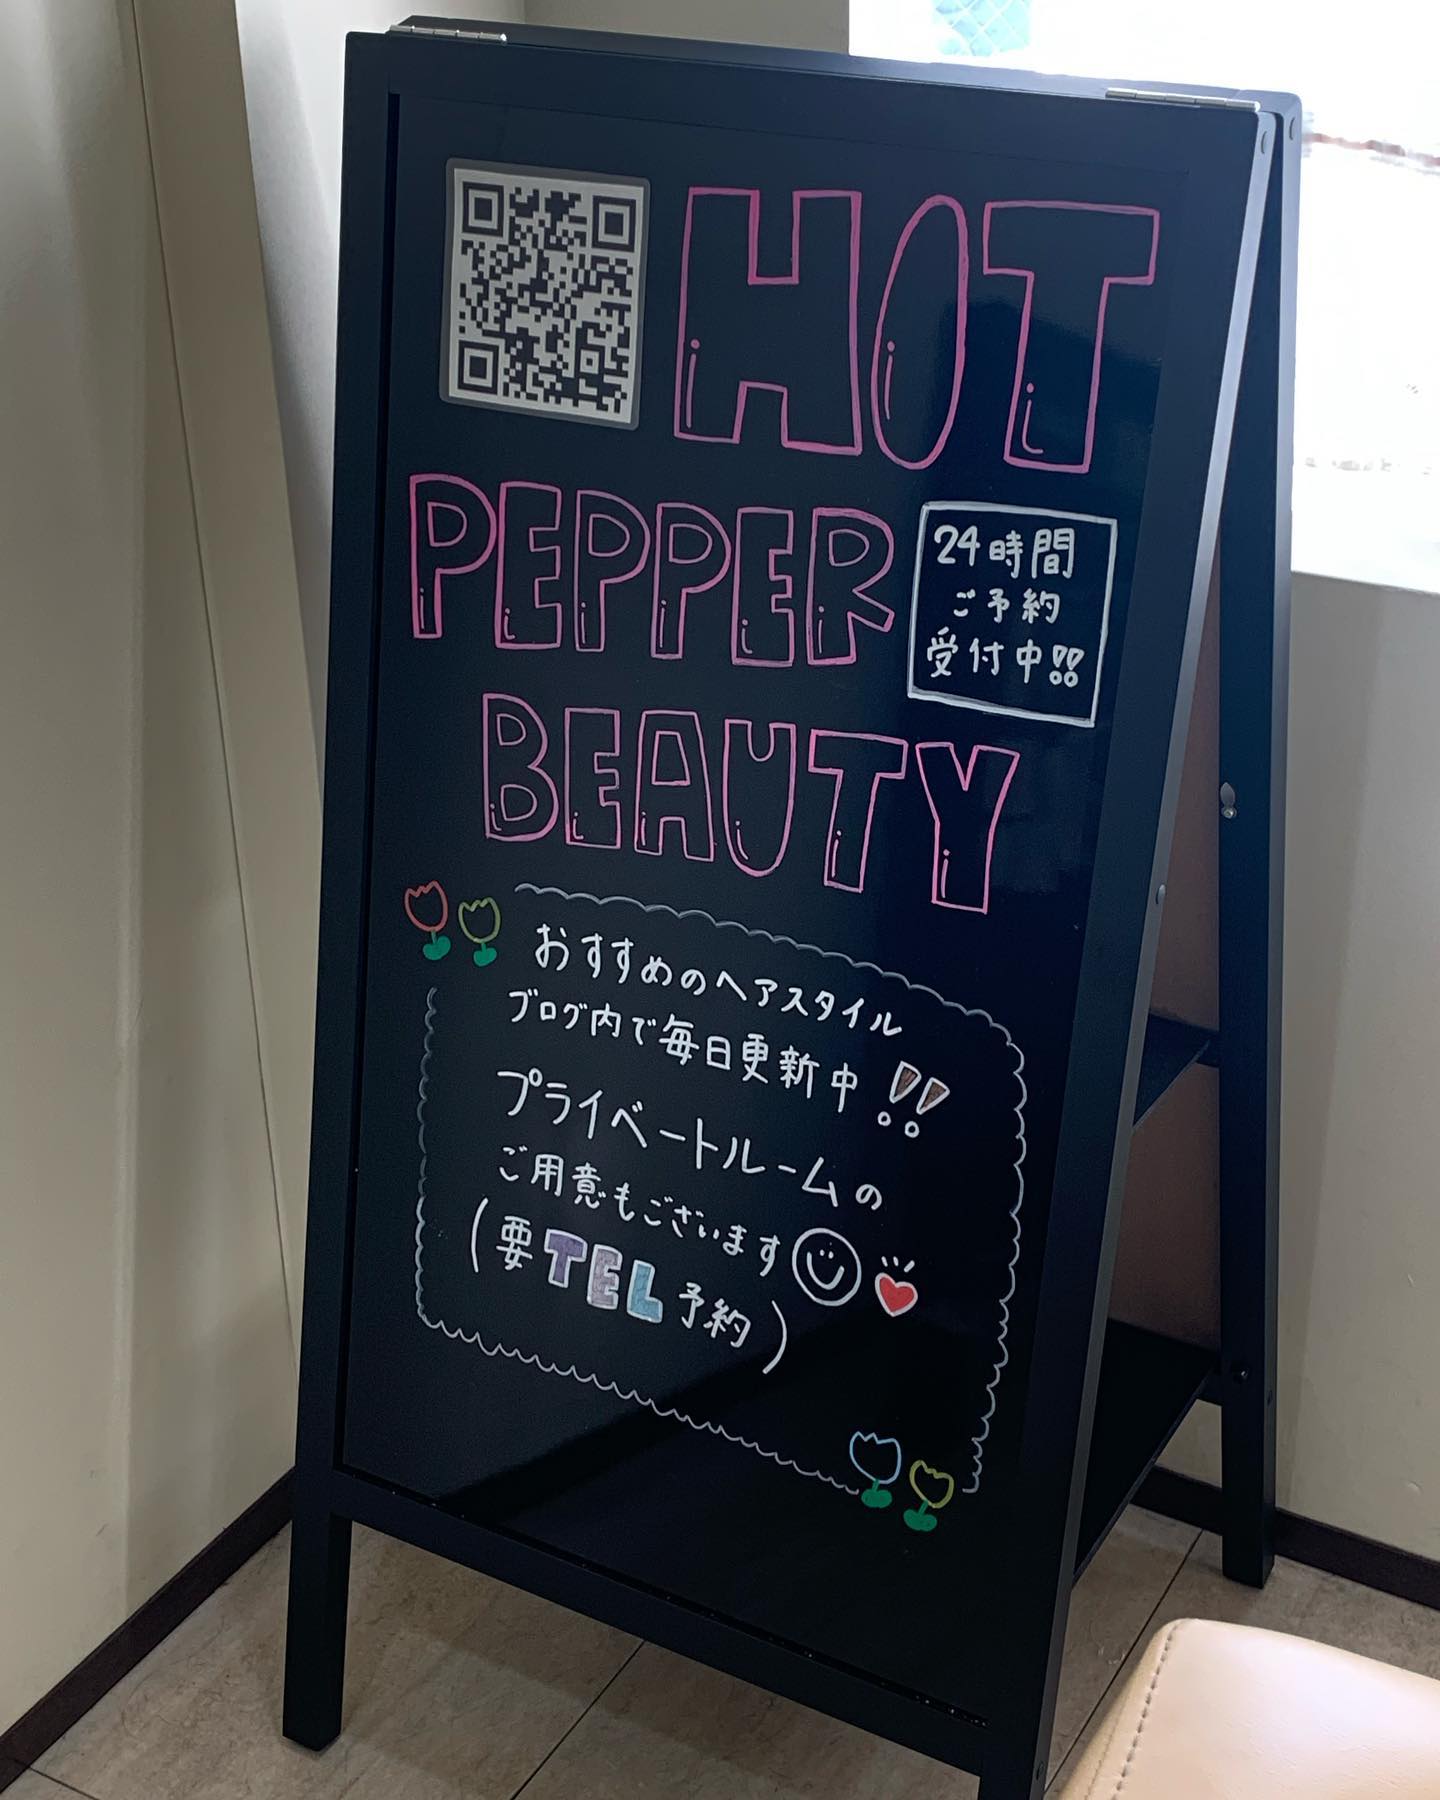 HOT
PEPPER
BEAUTY
24時間
ご予約
受付中!!
おすすめのヘアスタイル
ブログ内で毎日更新中!!
プライベートルームの
ご用意もございます
(要TEL予約)